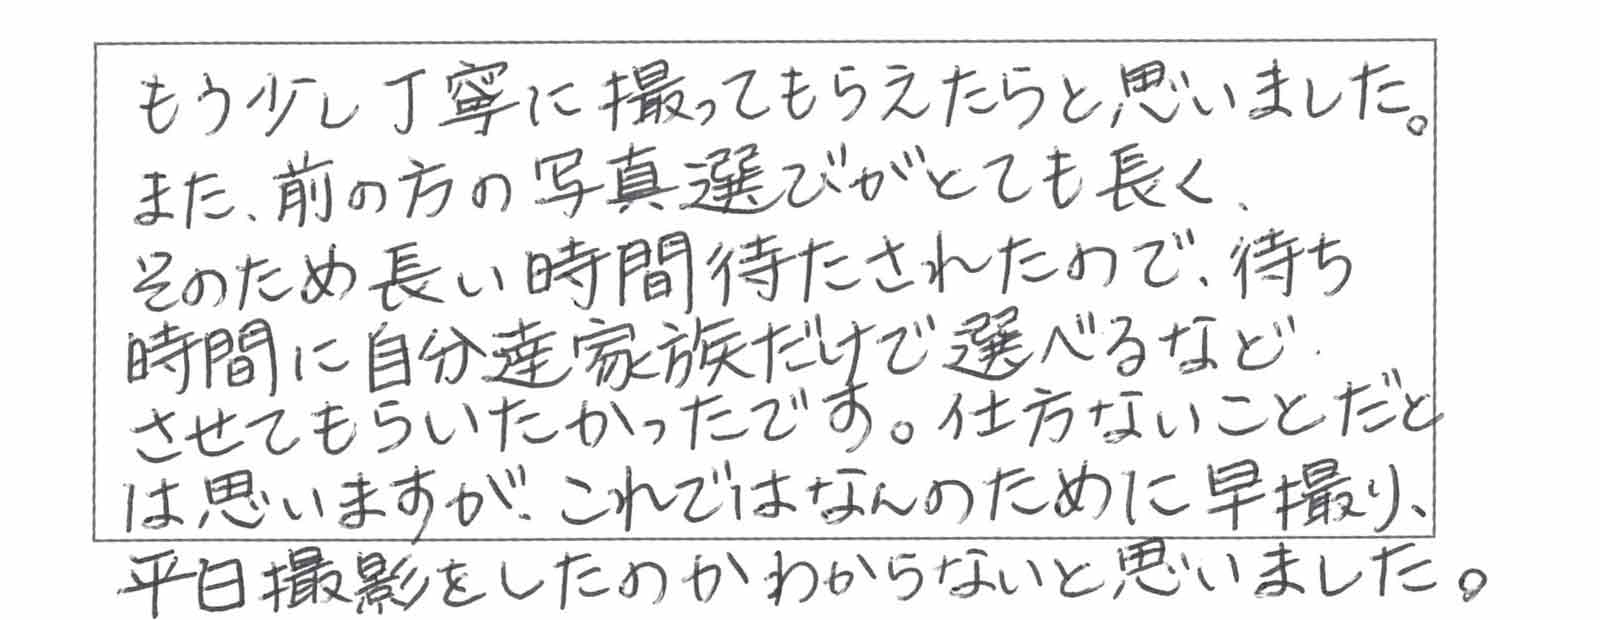 もう少し丁寧に撮ってもらえたらと思いました。
また、前の方の写真選びがとても長く、
そのため長い時間待たされたので、待ち
時間に自分達家族だけで選べるなど
させてもらいたかったです。仕方ないことだと
は思いますが、これではなんのために早撮り、
平日撮影をしたのかわからないと思いました。